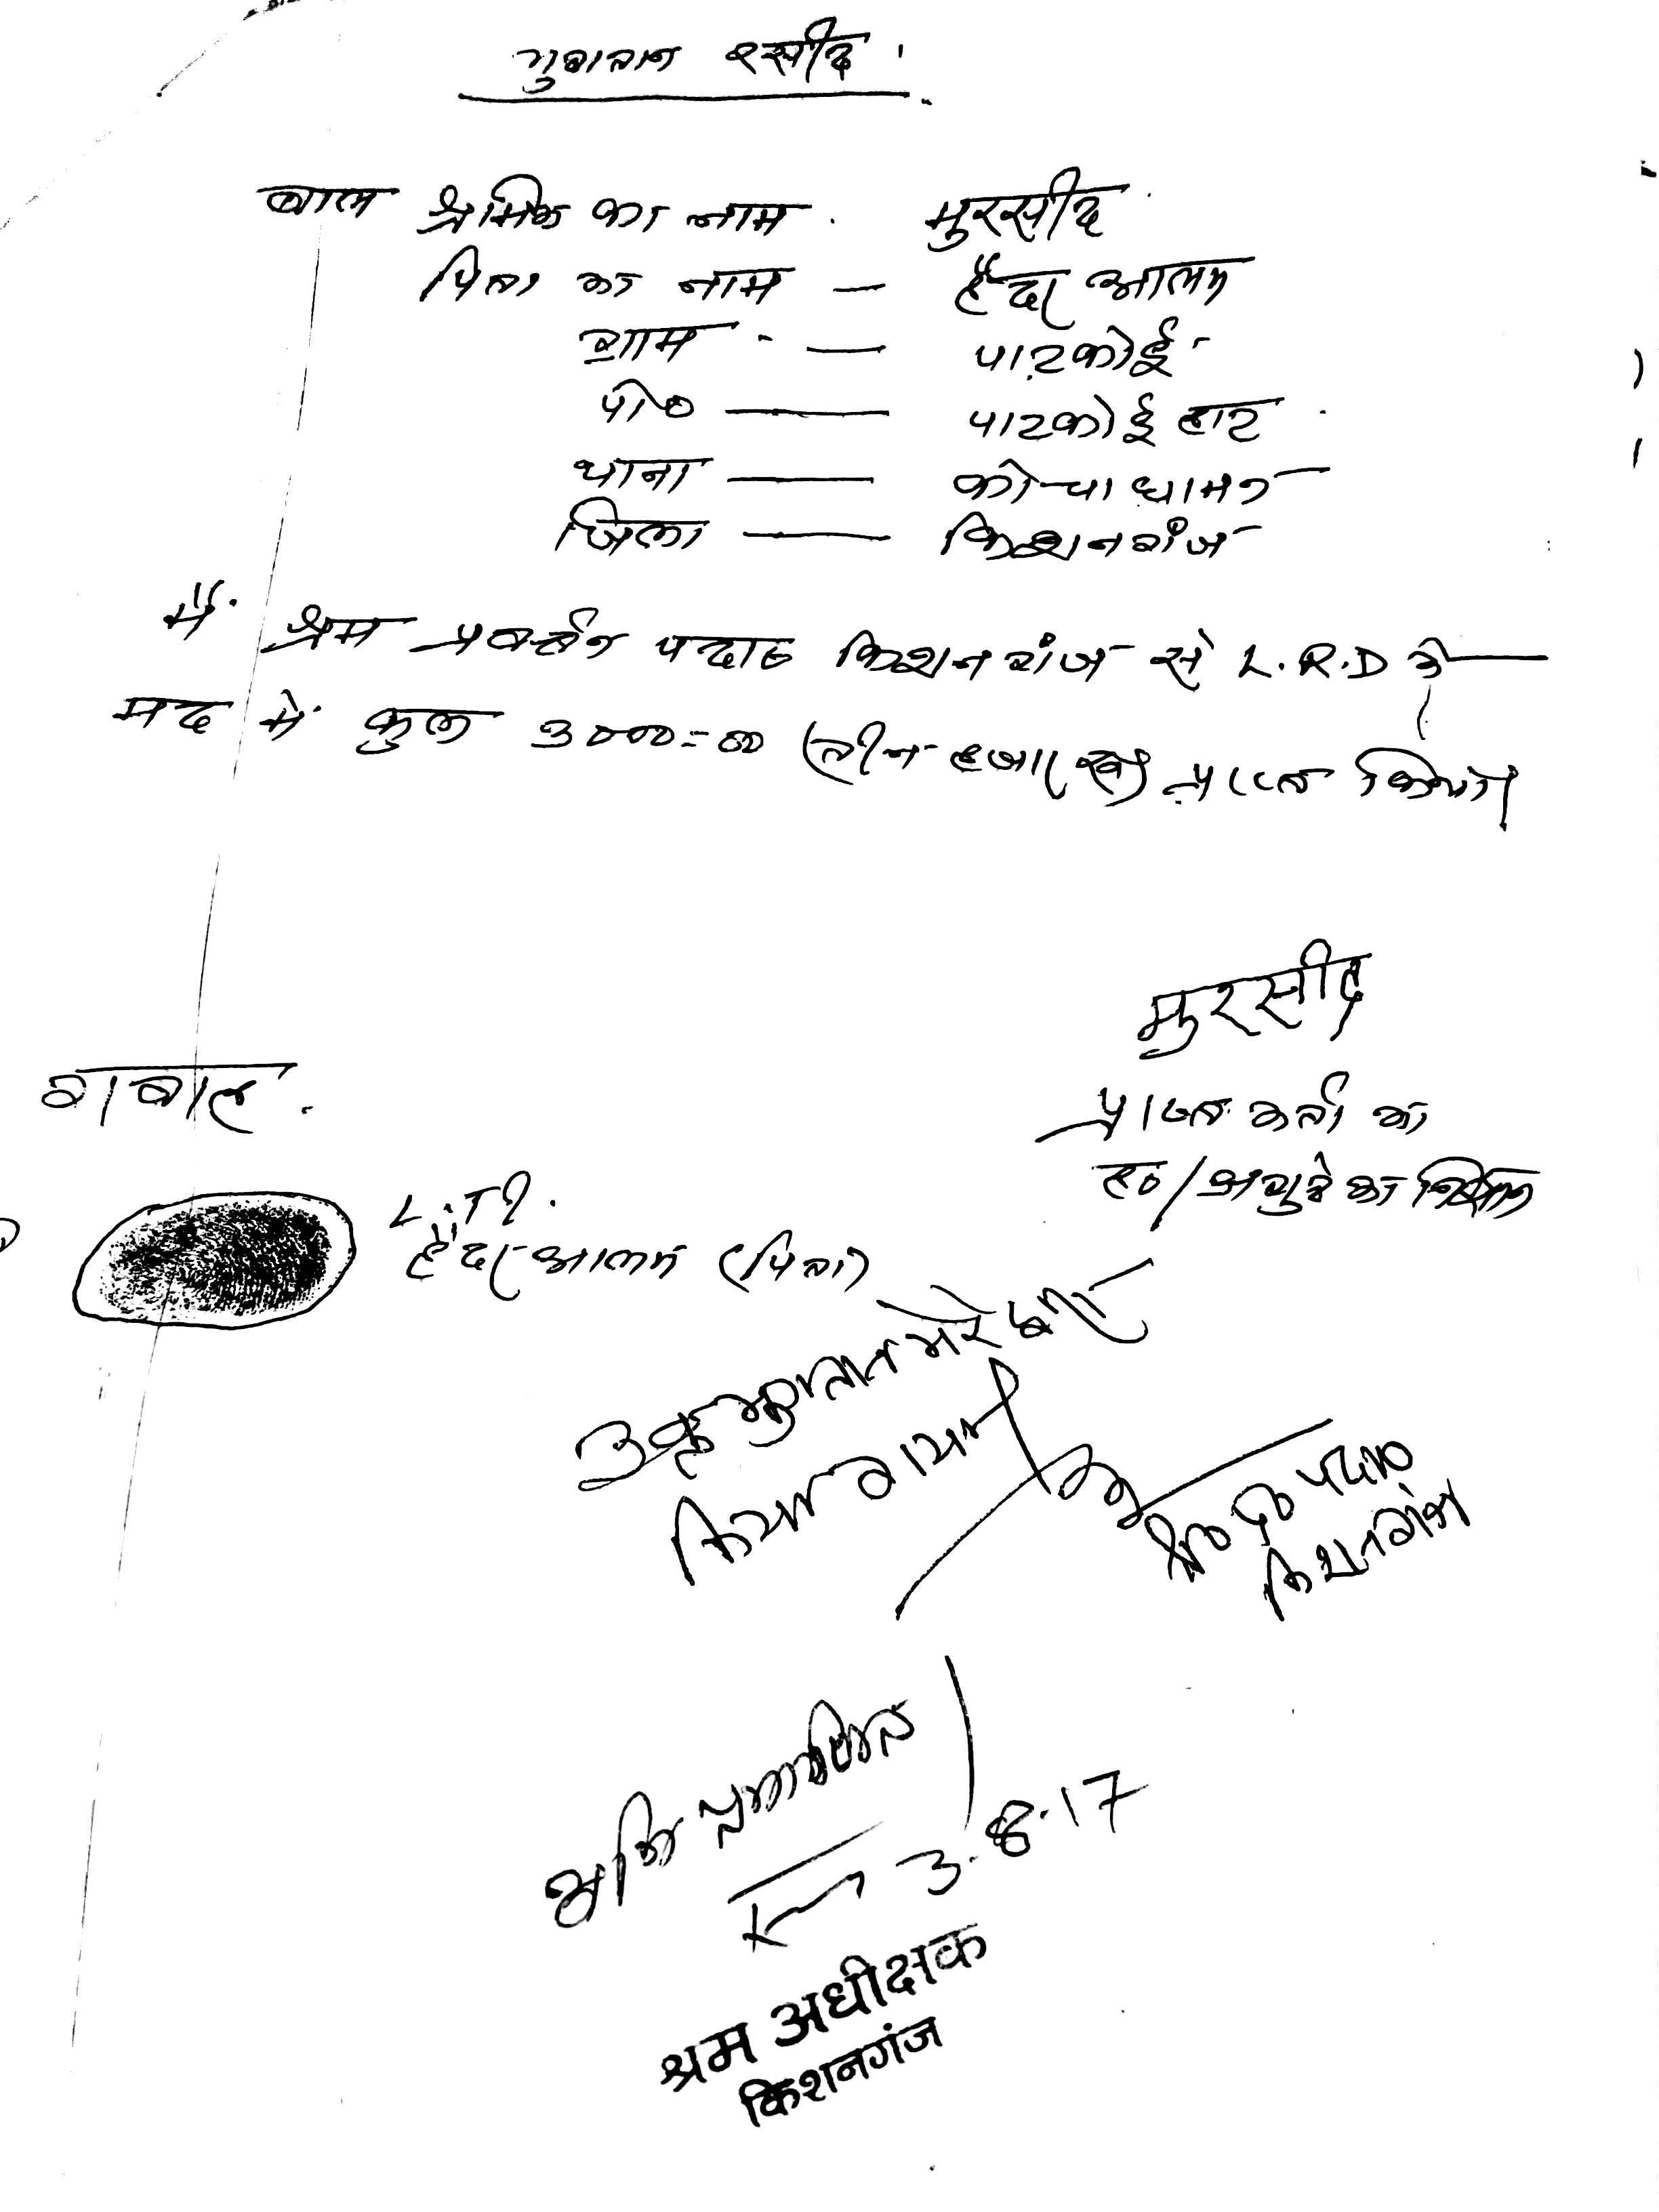 भुगतान रसीद
बाल श्रमिक का नाम - मुरसीद
पिता का नाम - हैदर आलम
ग्राम - पाटकोई
पो० - पाटकोई हाट
थाना - कोचाधामन
जिला - किशनगंज
मैं श्रम प्रवर्तन पदा० किशनगंज से L.R.D के
मद में कुल 3000=00 (तीन हजार रु०) प्राप्त किया।
मुरसीद
प्राप्त कर्ता का
ह०/अंगुठे का निशान
गवाह
L.T.I.
हैदर आलम (पिता)
उक्त भुगतान मेरे द्वारा
किया गया
श्र० प्र० पदा०
किशनगंज
अभिप्रमाणित
3.8.17
श्रम अधीक्षक
किशनगंज